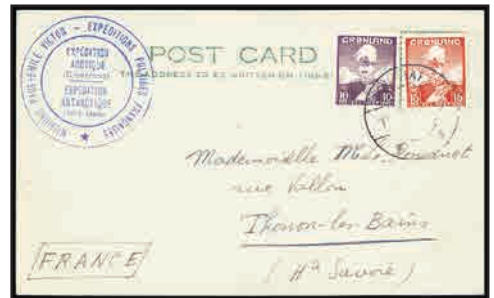 MISSIONS PAUL-EMILE VICTOR - EXPÉDITIONS POLAIRES FRANÇAISES
EXPÉDITION
ARCTIQUE
EXPÉDITION
ANTARCTIQUE
POST CARD
THE ADDRESS TO BE WRITTEN ON THIS
GRØNLAND
10 10
GRØNLAND
15 15
Mademoiselle
rue Vallon
Thonon-les-Bains
(Hte Savoie)
FRANCE